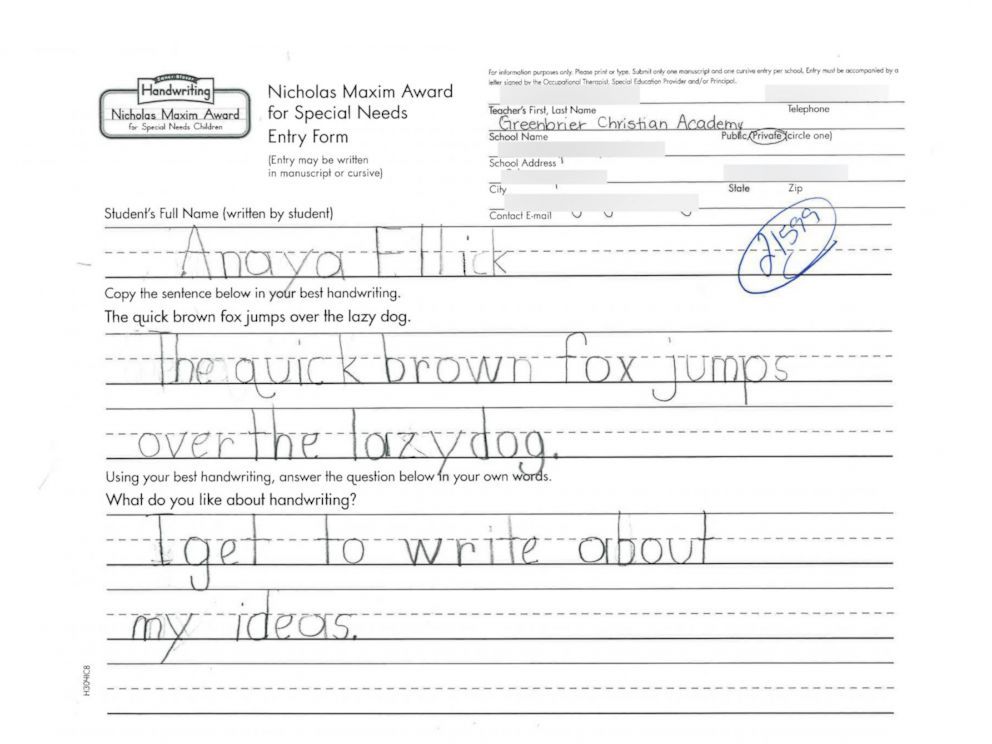 Zaner-Bloser
Handwriting
Nicholas Maxim Award
for Special Needs Children
Nicholas Maxim Award
for Special Needs
Entry Form
(Entry may be written
in manuscript or cursive)
For information purposes only. Please print or type. Submit only one manuscript and one cursive entry per school. Entry must be accompanied by a
letter signed by the Occupational Therapist, Special Education Provider and/or Principal.
Teacher's First, Last Name Telephone
Greenbrier Christian Academy
School Name Public/Private (circle one)
School Address
City State Zip
Contact E-mail
Student's Full Name (written by student)
21599
Anaya Ellick
Copy the sentence below in your best handwriting.
The quick brown fox jumps over the lazy dog.
The quick brown fox jumps
over the lazy dog.
Using your best handwriting, answer the question below in your own words.
What do you like about handwriting?
I get to write about
my ideas.